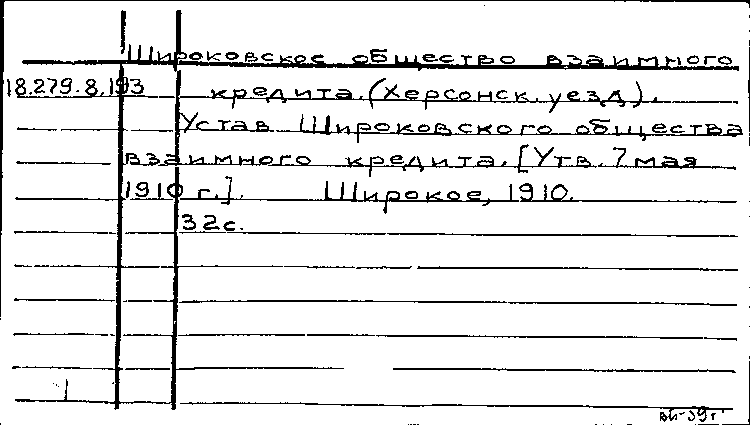 Широковское общество взаимного
18.279.8.193 кредита. (Херсонск. уезд).
Устав Широковского общества
взаимного кредита. [Утв. 7 мая
1910 г.]. Широкое, 1910.
32с.